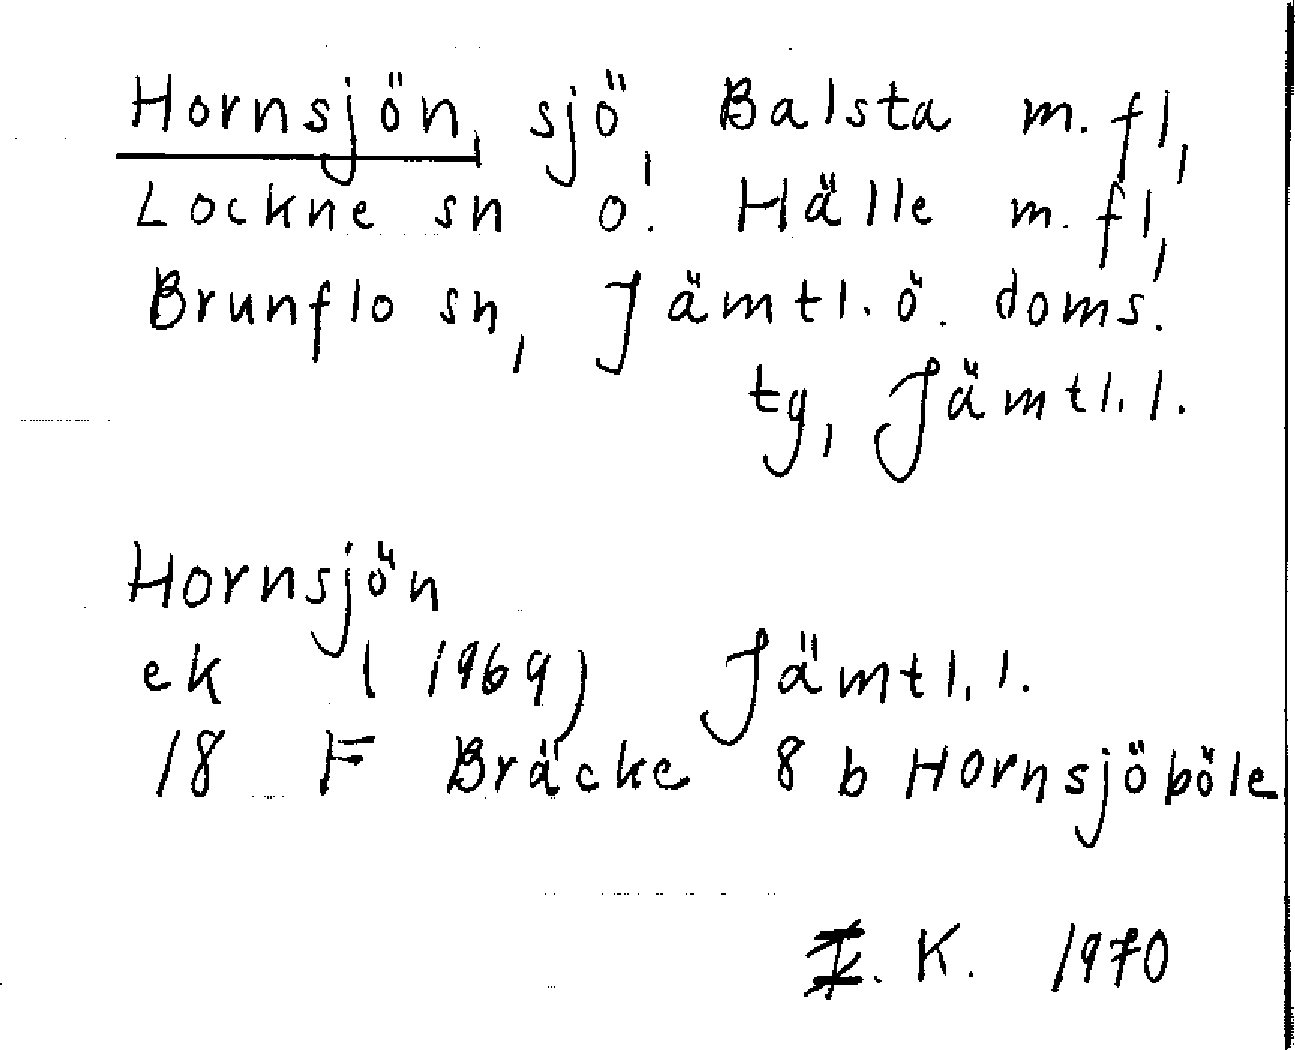 Hornsjön, sjö, Balsta m. fl,
Lockne sn o. Hälle m. fl,
Brunflo sn, Jämtl. ö. doms.
tg, Jämtl. l.
Hornsjön
ek (1969) Jämtl. l.
18 F Bräcke 8 b Hornsjöböle
K. 1970